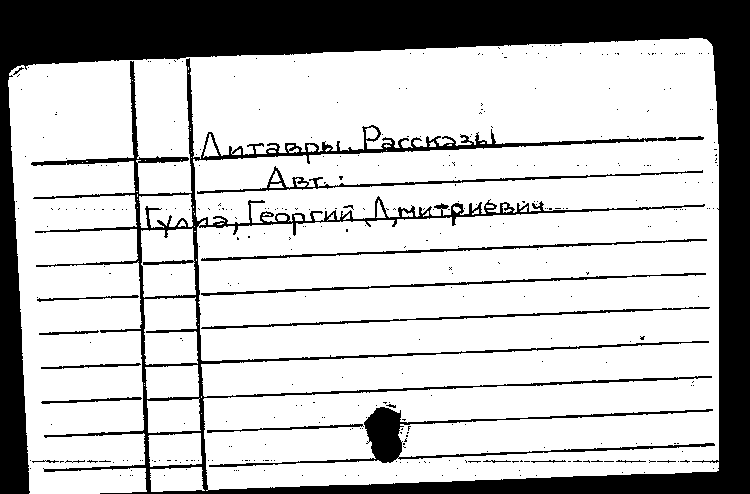 Литавры. Рассказы
Авт.:
Гулиа, Георгий Дмитриевич